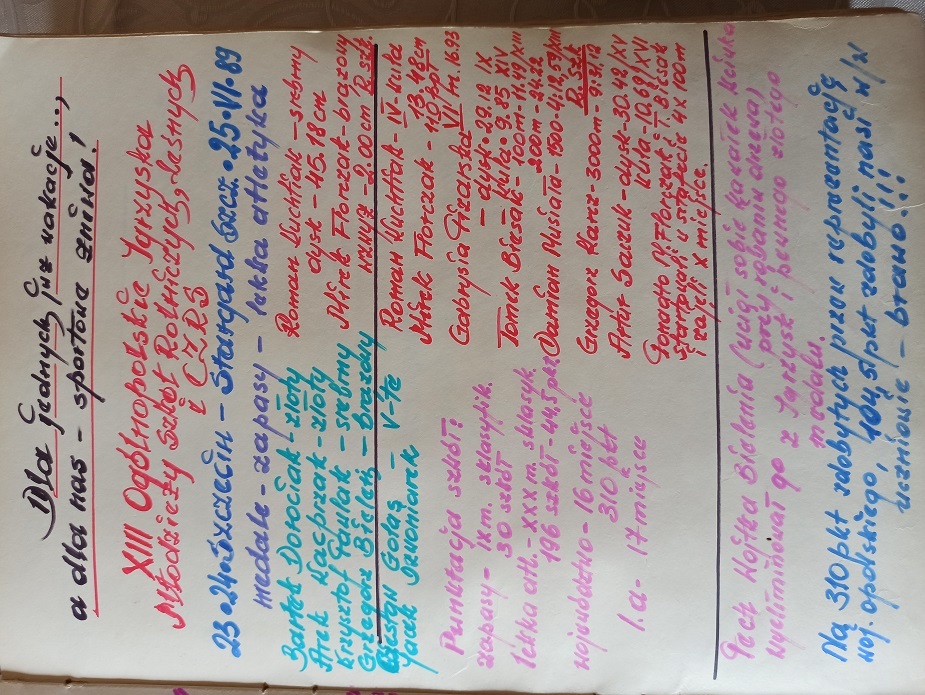 Dla jednych już wakacje...,
a dla nas - sportowe żniwa!
XIII Ogólnopolskie Igrzyska
Młodzieży Szkół Rolniczych, Leśnych
i CZRS
23.24. Szczecin - Stargard Szcz. 25.VI.89
medale - zapasy - lekka atletyka
Bartek Dorociak - złoty
Arek Kacprzak - złoty
Krzysztof Pawlak - srebrny
Grzegorz Bielech - brązowy
Bastjan Gołaś
Jacek Skoniarek V-te
Roman Kuchtiak - srebrny
dysk - 45.18 cm
Mirek Florczak - brązowy
wzwyż - 2.00 cm R. szk.
Roman Kuchtiak - IV - kula
13.48 cm
Mirek Florczak - 110 ppł
VI m. 16.93
Gabrysia Pizarska
- dysk - 29.12 IX
kula - 9.85 XIV
Tomek Biesak - 100m - 11.49/XIII
200m - 24.22
Damian Musiał - 1500 - 4.12.59 pkt
R. Szk
Grzegorz Karez - 3000m - 9.31/12
Artur Saczuk - dysk - 30.42/XV
kula - 10.69/XVI
Ponadto M. Florczak i T. Biesak
startowali w sztafecie 4x100m
i zajęli X miejsce.
Punktacja szkół:
zapasy - IX m. sklasyfik.
30 szkół
lekka atl. - XXX m. sklasyk.
196 szkół - 44,5 pkt
województwo - 16 miejsce
310 pkt
l.a - 17 miejsce
Pech Wojtka Bielenia (uciął sobie kawałek kciuka
przy rąbaniu drewna)
wyeliminował go z Igrzysk i pewnego złotego
medalu.
Na 310 pkt zdobytych przez reprezentację
woj. opolskiego, 104,5 pkt zdobyli nasi w/w
uczniowie - brawo!!!